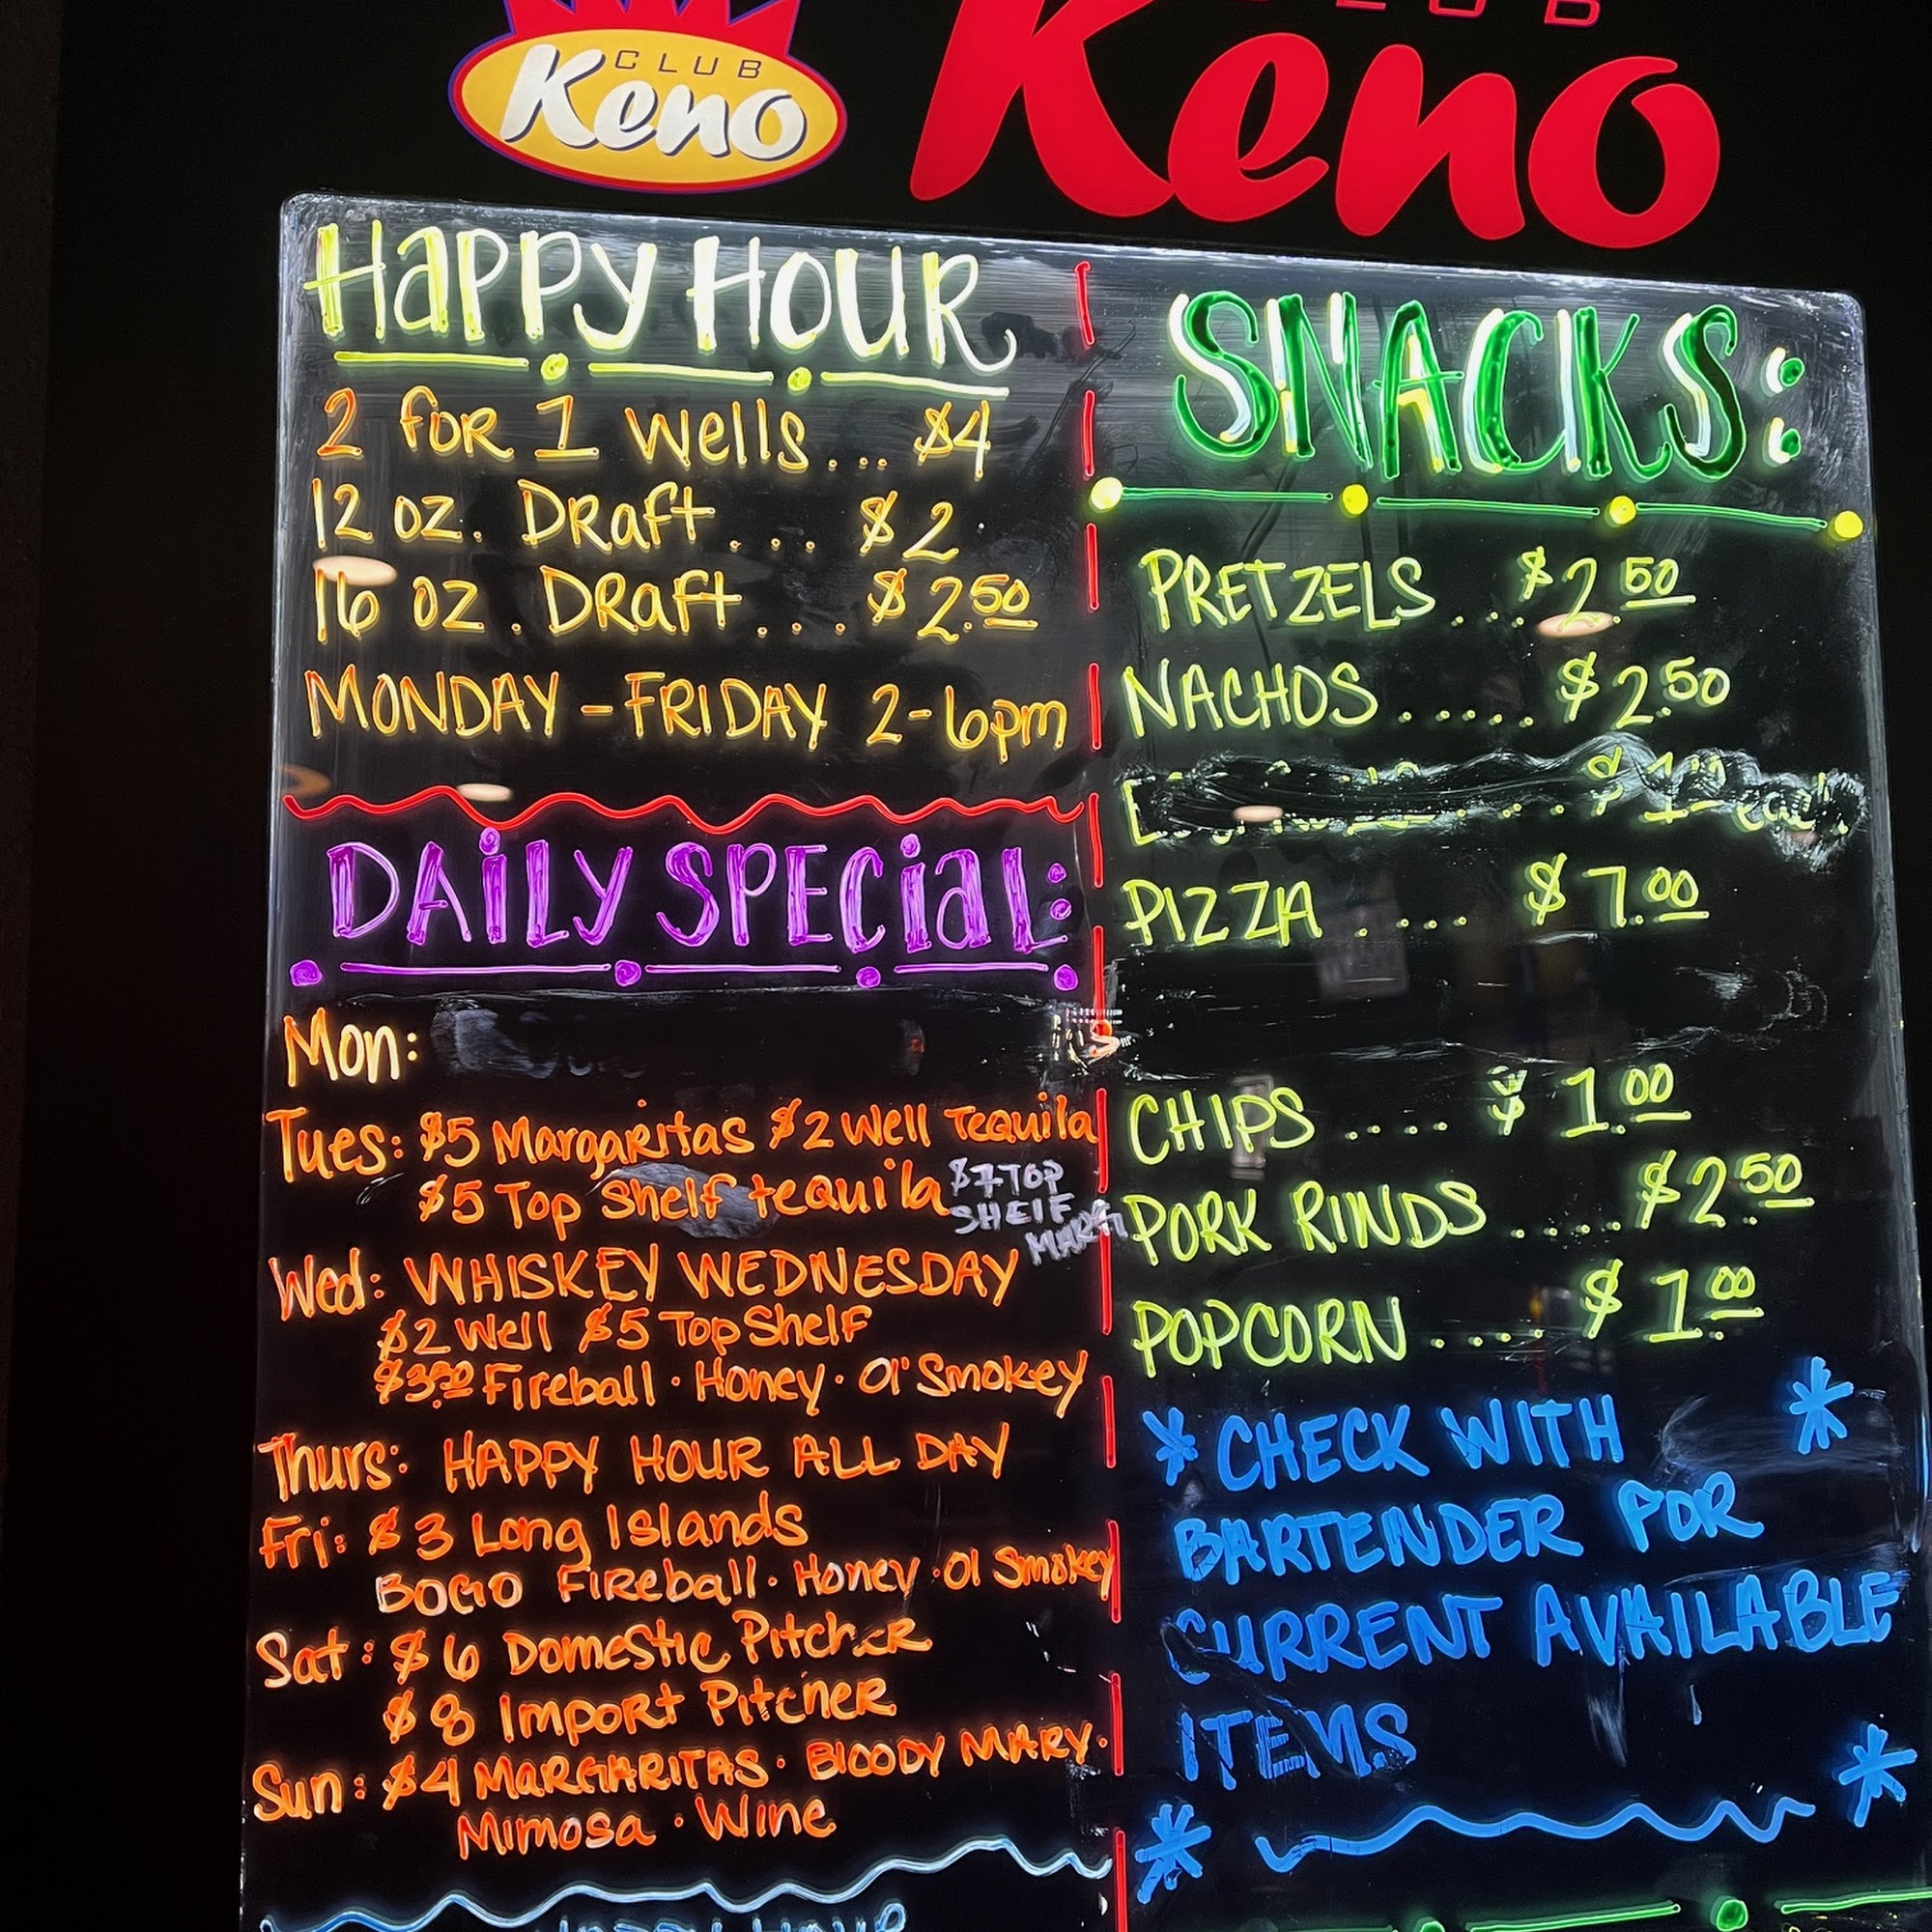 CLUB
Keno
CLUB
Keno
HAPPY HOUR
2 for 1 Wells... $4
12 oz. Draft.... $2
16 oz. Draft.... $2.50
MONDAY - FRIDAY 2-6pm
DAiLY SPECiaL:
Mon:
Tues: $5 Margaritas $2 Well Tequila
$5 Top Shelf tequila
$7 TOP
SHElF
MARG
Wed: WHISKEY WEDNESDAY
$2 Well $5 Top Shelf
Fireball · Honey · Ol' Smokey
Thurs: HAPPY HOUR ALL DAY
Fri: $3 Long Islands
BOGO Fireball · Honey · Ol Smokey
Sat: $6 Domestic Pitcher
$8 Import Pitcher
Sun: $4 MARGARITAS · BlOODY MARY ·
Mimosa · Wine
HAPPY HOUR
SNACKS:
PRETZELS ... $2.50
NACHOS ...... $2.50
PIZZA .... $7.00
CHIPS .... $1.00
PORK RINDS .... $2.50
POPCORN .... $1.00
* CHECK WITH *
BARTENDER FOR
CURRENT AVAILABLE
ITEMS
* *